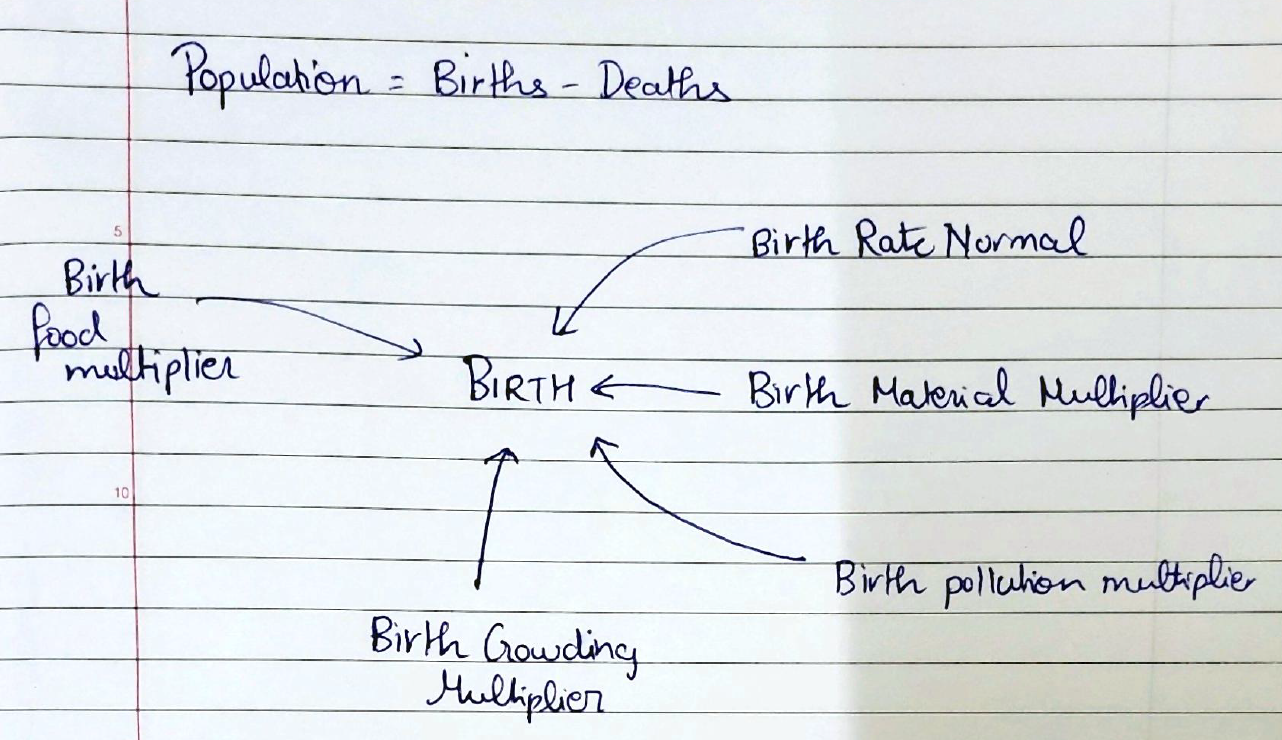 Population = Births - Deaths
5
Birth Rate Normal
Birth
food
multiplier
BIRTH
Birth Material Multiplier
10
Birth pollution multiplier
Birth Crowding
Multiplier